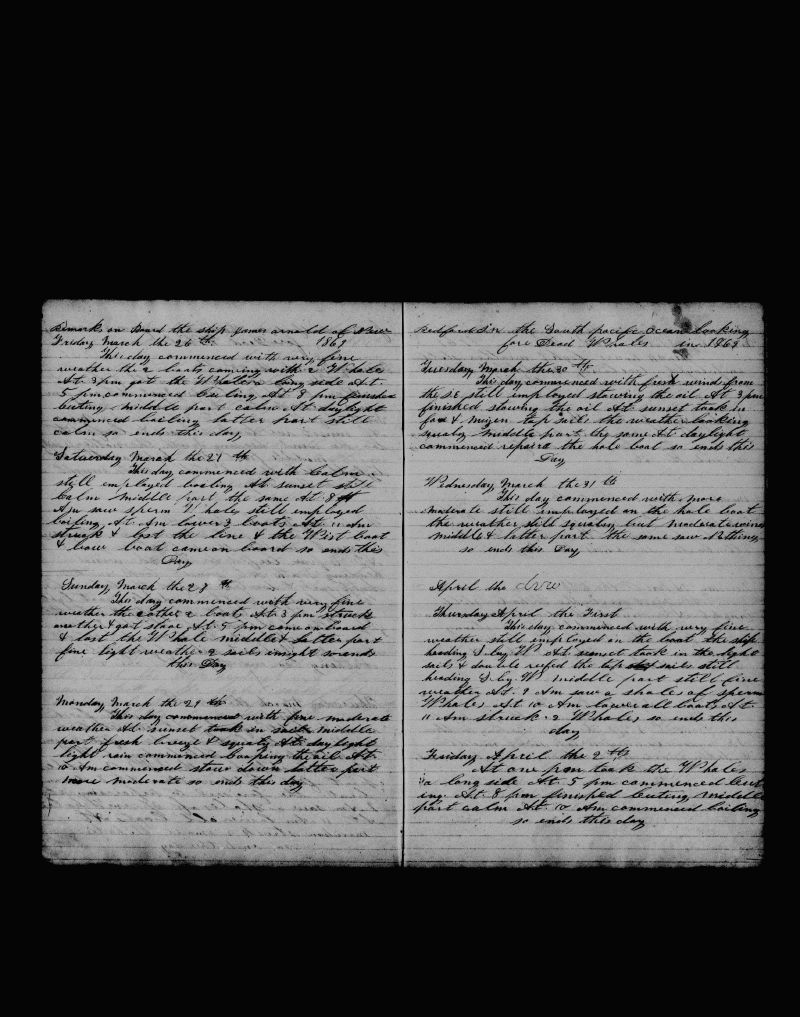 Remarks on Board the ship James arnold of New
Friday March the 26 th 1869
This day commenced with very fine
weather the 2 boats coming with 2 Whales
At 3 pm got the Whales a long side At
5 pm commenced Cuting At 8 pm finished
Cuting middle part calm At daylight
commenced boiling latter part still
calm so ends this day
Satuerday March the 27 th
This day commenced with Calm
still employed boiling At sunset still
Calm Middle part the same At 8
Am saw sperm Whale still employed
boiling At Am lower 3 boats At 11 Am
struck & lost the line & the Wist boat
& bow boat came on board so ends this
Day
Sunday March the 28 th
This day commenced with very fine
weather the other 2 boats At 3 pm struck
another & got stove At 5 pm came on board
& lost the Whale middle & latter part
fine light weather 2 sails insight so ends
this Day
Monday March the 29 th
This day commenced with fine moderate
weather At sunset took in sails middle
part fresh breeze & squaly At daylight
light rain commenced Couping the oil At
10 Am commenced stow down latter part
more moderate so ends this day
Bedford in the South pacific Ocean looking
fore Dead Whales in 1869
Tuesday March the 30 th
This day commenced with fresh wind from
the SE still employed stowing the oil At 3 pm
finished stowing the oil At sunset took in
fore & mizen top sails the weather looking
squaly middle part the same At daylight
commenced repaird the hole boat so ends this
Day
Wednesday March the 31 th
This day commenced with more
moderate still employed on the hole boat
the weather still squaley but moderate wind
middle & latter part the same saw Nothing
so ends this Day
April the
Thursday April the First
This day commenced with very fine
weather still employed on the boat the ship
heading S. by W. At sunset took in the light
sails & double reefed the top sails still
heading S. by. W. middle part still fine
weather At 9 Am saw a shales of sperm
Whales At 10 Am lower all boats At
11 Am struck 2 Whales so ends this
day
Friday April the 2 th
At one pm took the Whales
a long side At 5 pm commenced Cut
ing At 8 pm finished Cuting middle
part calm At 10 Am commenced boiling
so ends this day